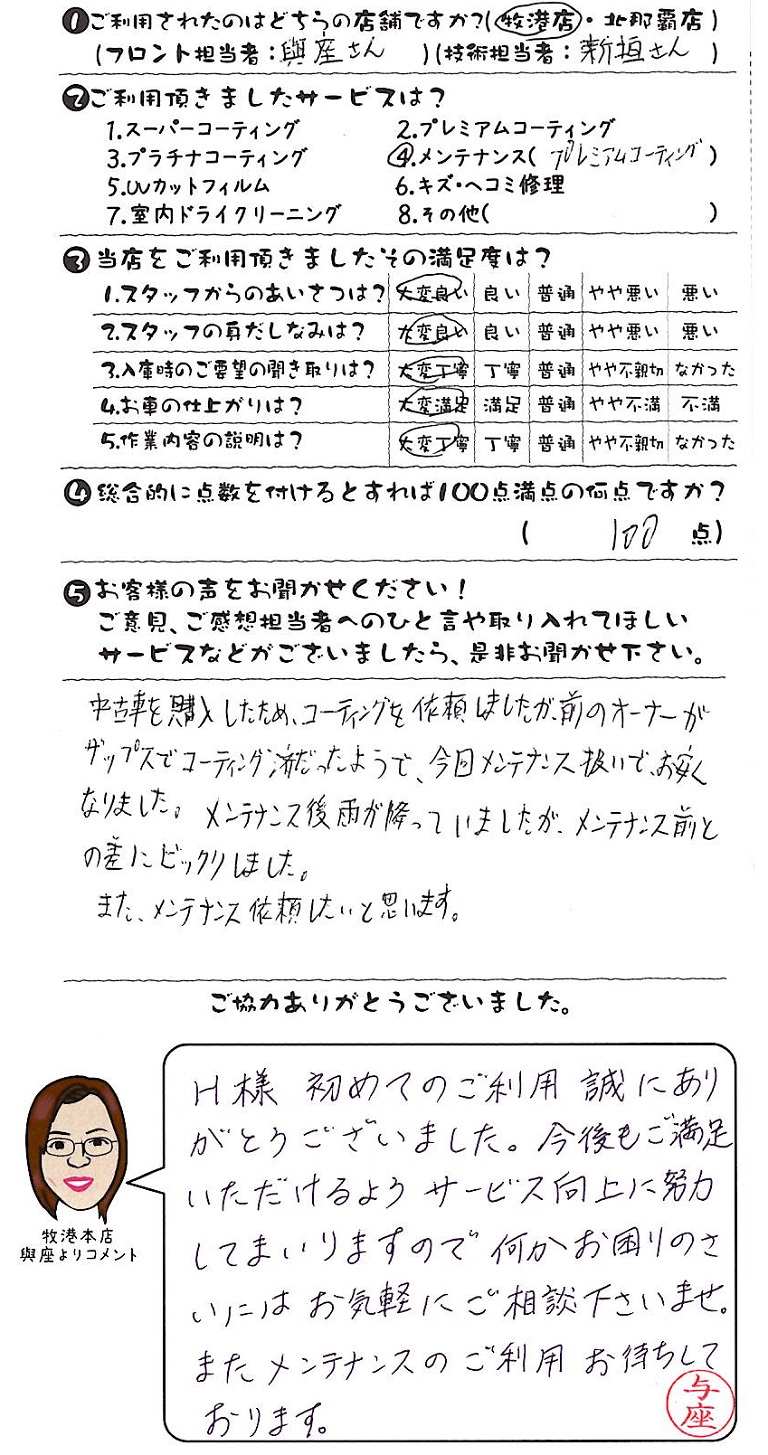 ❶ご利用されたのはどちらの店舗ですか?(牧港店・北那覇店)
(フロント担当者:與座さん)(技術担当者:新垣さん)
❷ご利用頂きましたサービスは?
1.スーパーコーティング 2.プレミアムコーティング
3.プラチナコーティング ④.メンテナンス(プレミアムコーティング)
5.UVカットフィルム 6.キズ・ヘコミ修理
7.室内ドライクリーニング 8.その他( )
❸当店をご利用頂きましたその満足度は?
1.スタッフからのあいさつは? 大変良い 良い 普通 やや悪い 悪い
2.スタッフの身だしなみは? 大変良い 良い 普通 やや悪い 悪い
3.入庫時のご要望の聞き取りは? 大変丁寧 丁寧 普通 やや不親切 なかった
4.お車の仕上がりは? 大変満足 満足 普通 やや不満 不満
5.作業内容の説明は? 大変丁寧 丁寧 普通 やや不親切 なかった
❹総合的に点数を付けるとすれば100点満点の何点ですか?
( 100 点)
❺お客様の声をお聞かせください!
ご意見、ご感想担当者へのひと言や取り入れてほしい
サービスなどがございましたら、是非お聞かせ下さい。
中古車を購入したため、コーティングを依頼しましたが、前のオーナーが
ザップスでコーティング済だったようで、今回メンテナンス扱いで、お安く
なりました。メンテナンス後雨が降っていましたが、メンテナンス前と
の差にビックリしました。
また、メンテナンス依頼したいと思います。
ご協力ありがとうございました。
H様 初めてのご利用 誠にあり
がとうございました。今後もご満足
いただけるよう サービス向上に努力
してまいりますので 何かお困りのさ
いには お気軽に ご相談下さいませ。
また メンテナンスの ご利用 お待ちして
おります。
与座
牧港本店
與座よりコメント